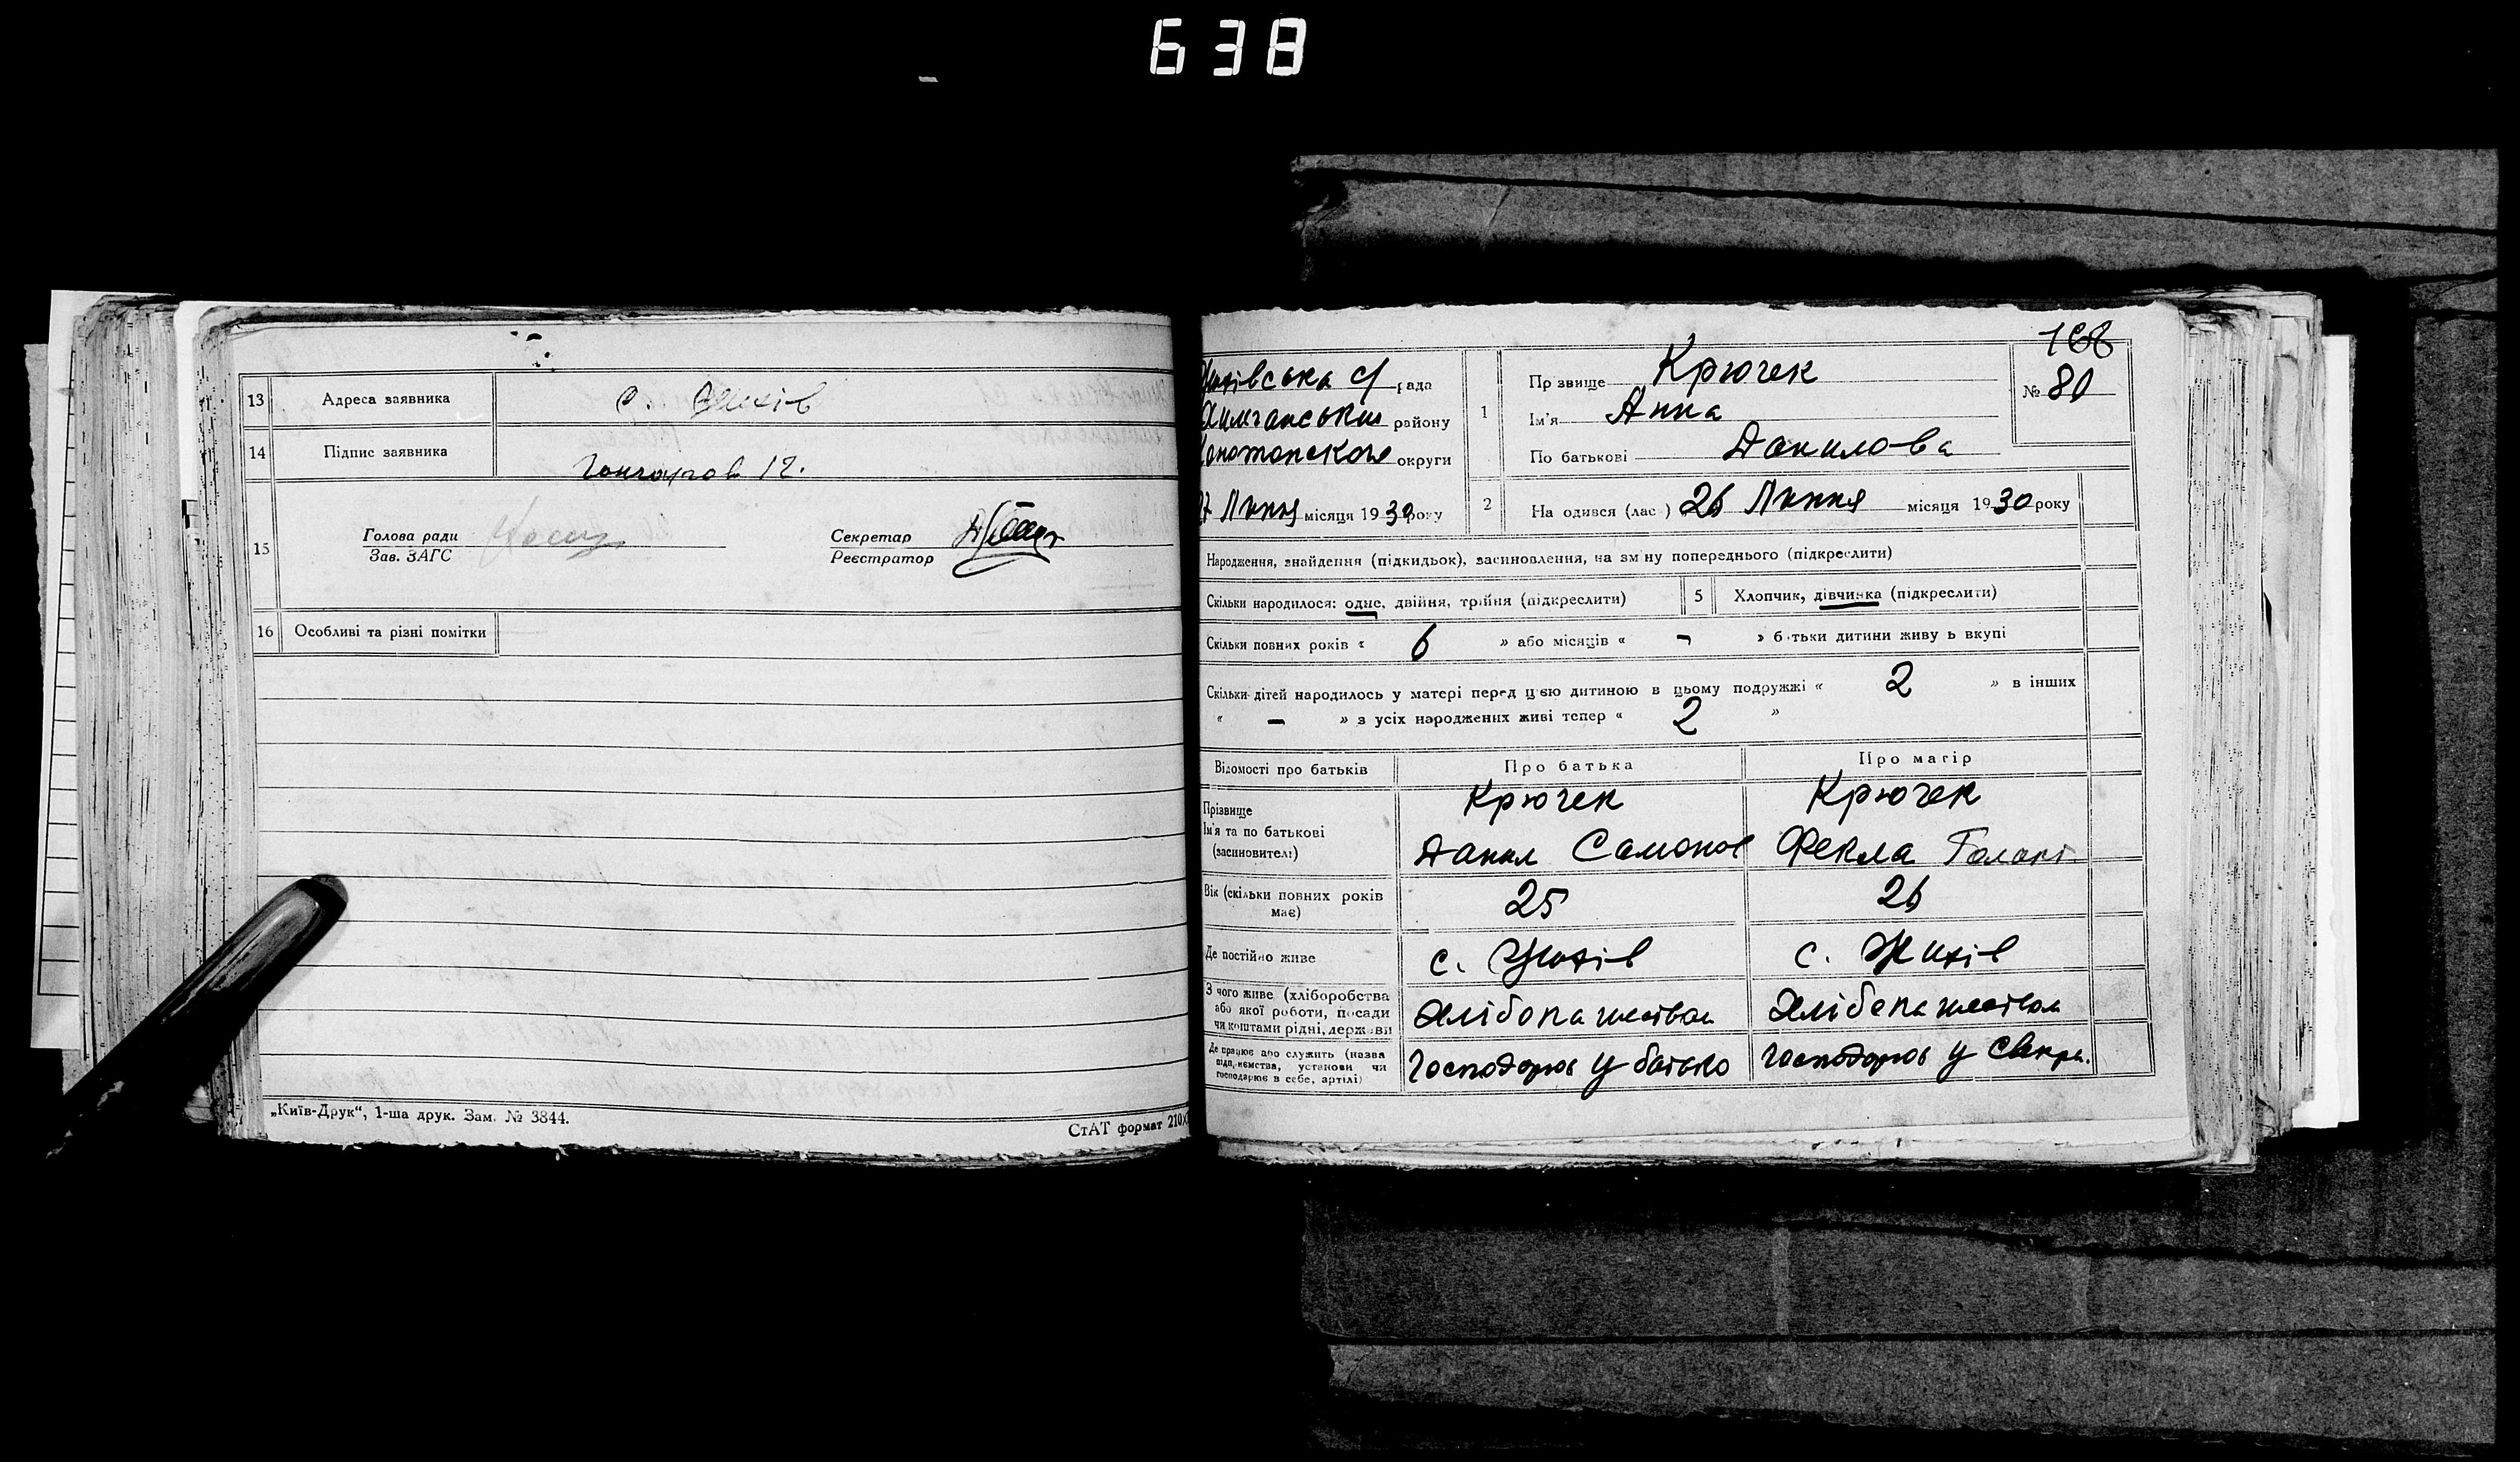 638
13 Адреса заявника с. Жихів
14 Підпис заявника
Гончаров
15 Голова ради
Зав. ЗАГС
Секретар
Реєстратор
16 Особливі та різні помітки
„Київ-Друк“, 1-ша друк. Зам. № 3844.
СтАТ формат 210х
168
№ 80
Жихівська с/рада
району
округи
27 Липня місяця 1930 року
1 Пр звище Крючек
Ім'я Анна
По батькові Данилова
2 На одився (лас ) 26 Липня місяця 1930 року
Народження, знайдення (підкидьок), засиновлення, на зм ну попереднього (підкреслити)
Скільки народилося: одне, двійня, трійня (підкреслити)
5 Хлопчик, дівчинка (підкреслити)
Скільки повних років « 6 » або місяців « - » б тьки дитини живу ь вкупі
Скільки дітей народилось у матері перед цією дитиною в цьому подружжі « 2 » в інших
« - » з усіх народжених живі тепер « 2 »
Відомості про батьків Про батька Про матір
Прізвище Крючек Крючек
Ім'я та по батькові
(засновителі) Данил Самонов Фекла
Вік (скільки повних років має) 25 26
Де постійно живе с. Жихів с. Жихів
З чого живе (хліборобства
або якої роботи, посади
чи коштами рідні, держави
Хлібопашеством Хлібопашеством
Де працює або служить (назва
підприємства, установи чи
господарює в себе, артілі)
у батька у